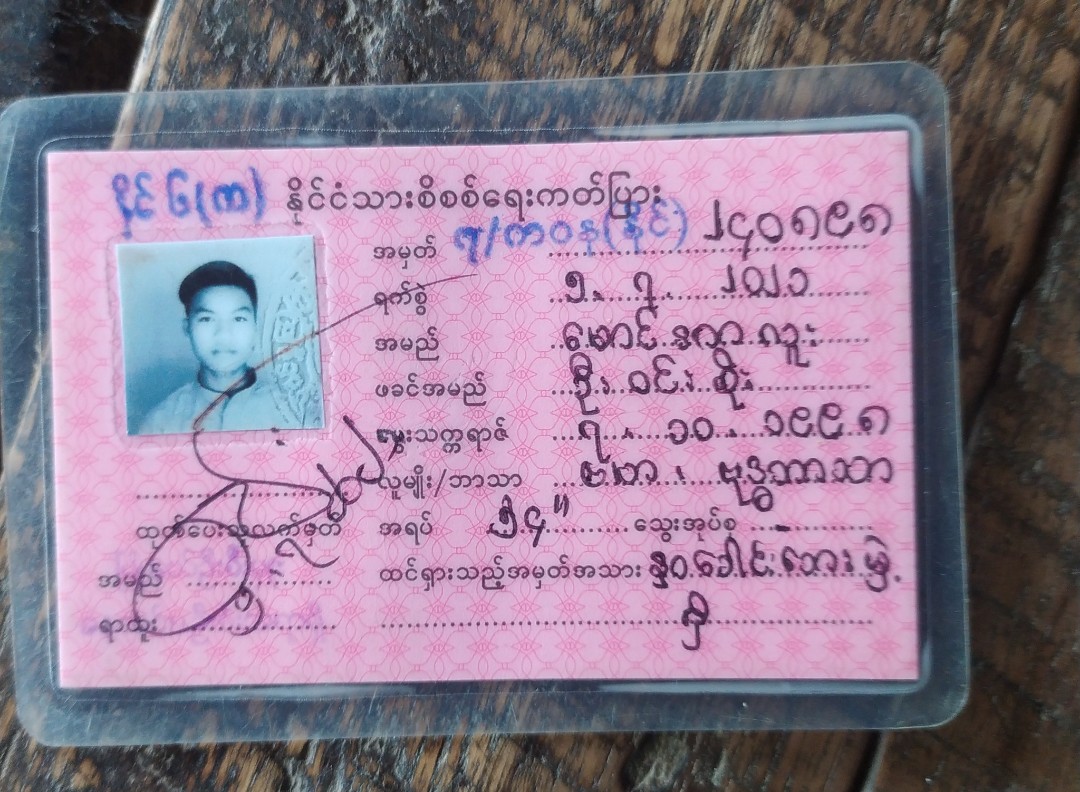 နိုင် ၆(ဏ) နိုင်ငံသားစိစစ်ရေးကတ်ပြား
အမှတ် ၇/ကဝန(နိုင်) ၂၄၀၈၉၈
ရက်စွဲ ၅. ၇. ၂၀၂၁
အမည် မောင်
ဖခင်အမည် ဦး ဝင်း စိုး
မွေးသက္ကရာဇ် ၇. ၁၀. ၁၉၉၈
လူမျိုး/ဘာသာ ဗမာ၊ ဗုဒ္ဓဘာသာ
အရပ် ၅'၄" သွေးအုပ်စု -
ထင်ရှားသည့်အမှတ်အသား နှာခေါင်းဘေးမှဲ့
ရှိ
ထုတ်ပေးသူလက်မှတ်
အမည်
ရာထူး